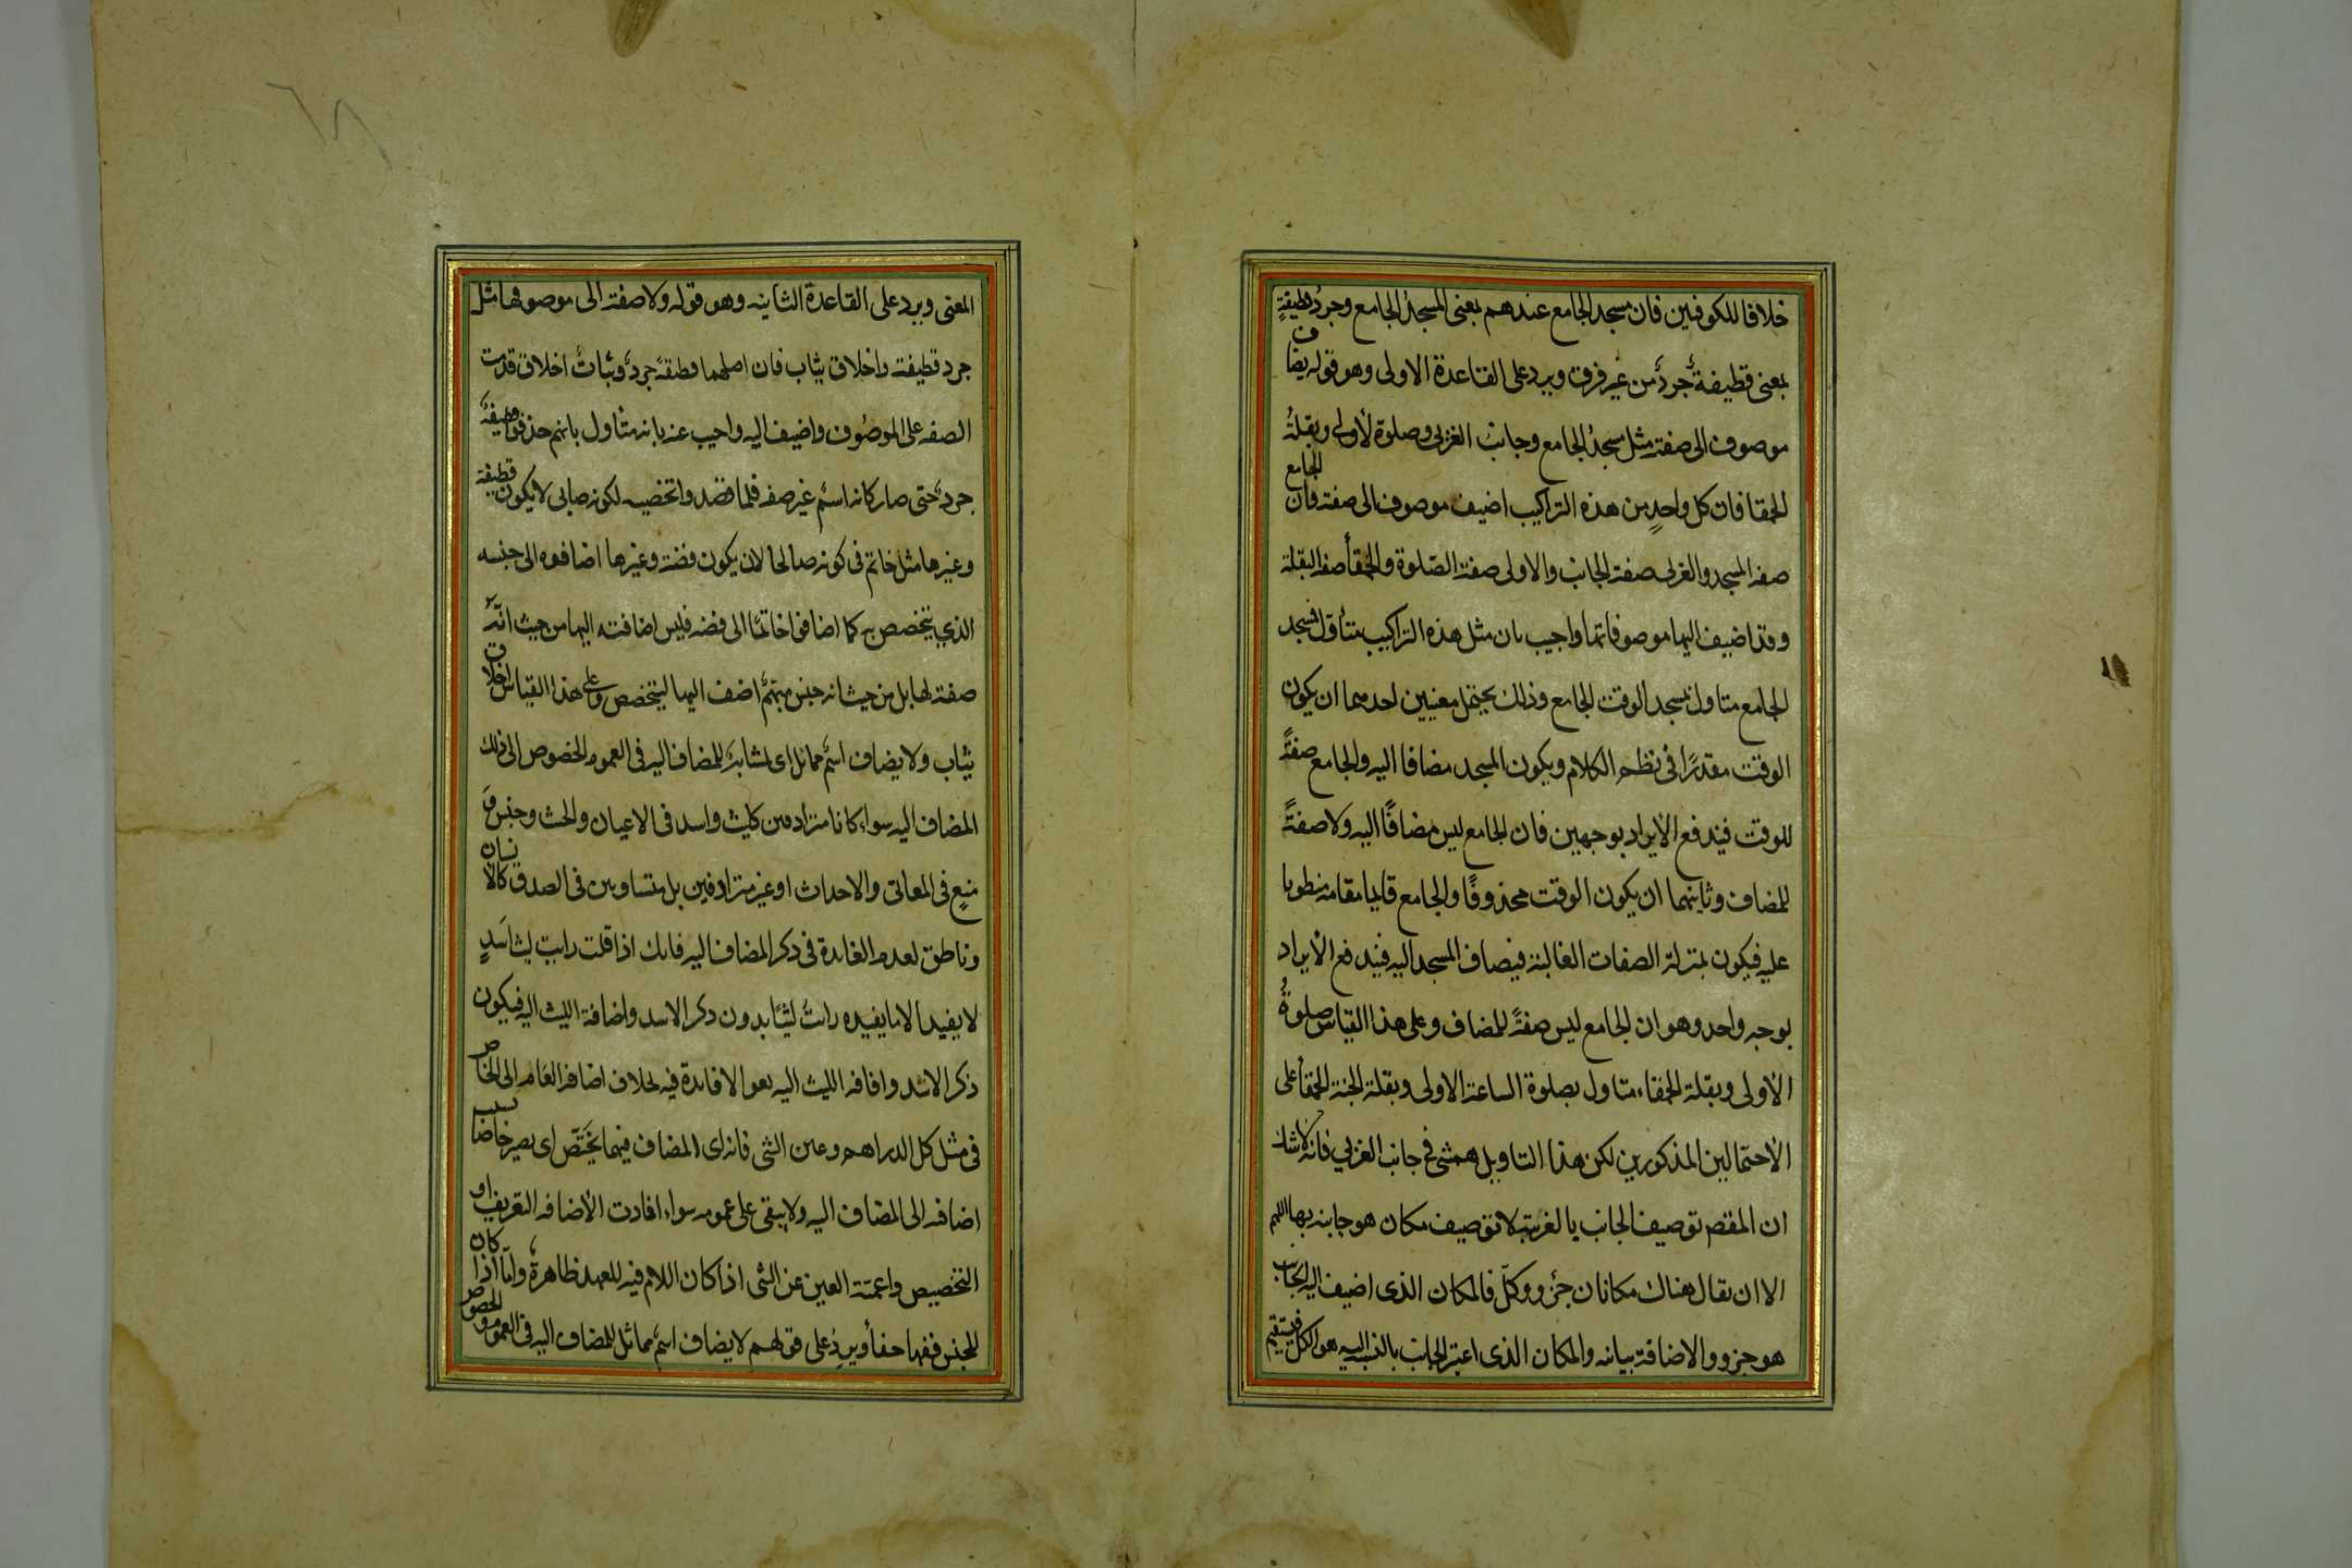 خلافا للكوفيين فان مسجد الجامع عندهم بمعنى المسجد الجامع وجرد قطيفة
بمعنى قطيفة جرد من غير فرق ويرد على القاعدة الاولى وهو قوله يضاف
موصوف الى صفته مثل مسجد الجامع وجانب الغربى وصلوة الاولى وبقلة
الحمقا فان كل واحد من هذه التراكيب اضيف موصوف الى صفته فان الجامع
صفه المسجد والغربى صفة الجانب والاولى صفة الصلوة والحمقأ صفة البقلة
وقد اضيف اليها موصوفاتها واجيب بان مثل هذه التراكيب متأول فمسجد
الجامع متاول بمسجد الوقت الجامع وذلك يحتمل معنيين احدهما ان يكون
الوقت مقدرًا فى نظم الكلام ويكون المسجد مضافا اليه والجامع صفةً
للوقت فيندفع الايراد بوجهين فان الجامع ليس مضافًا اليه ولا صفةً
للمضاف وثانيهما ان يكون الوقت محذوفًا والجامع قايما مقامه منطويا
عليه فيكون بمنزلة الصفات الغالبة فيضاف المسجد اليه فيندفع الايراد
بوجه واحد وهو ان الجامع ليس صفةً للمضاف وعلى هذا القياس صلوة
الاولى وبقلة الحمقاء متاول بصلوة الساعة الاولى وبقلة الحبة الحمقأ على
الاحتمالين المذكورين لكن هذا التاويل فى جانب الغربي فانه لا شك
ان المقص توصيف الجانب بالغربية لا توصيف مكان هو جانبه بها اللهم
الا ان يقال هناك مكانان جزو وكل فالمكان الذى اضيف اليه الجانب
هو جزو والاضافة بيانه والمكان الذى اعتبر الجانب بالنسبة اليه هو الكل فيستقيم
المعنى ويرد على القاعدة الثانيه وهو قوله ولا صفة الى موصوفها مثل
جرد قطيفة واخلاق ثياب فان اصلهما قطيفة جرد وثياب اخلاق قدمت
الصفه على الموصوف واضيف اليه واجيب عنه بانه متاول بانهم حذفوا قطيفة
جرد حتى صار كانه اسم غير صفه فلما قصدوا تخصيصه لكونه صالحا لان يكون قطيفة
وغيرها مثل خاتم فى كونه صالحا لان يكون فضة وغيرها اضافوه الى جنسه
الذي يتخصص به كما اضافوا خاتمًا الى فضه فليس اضافته اليها من حيث انه
صفة لها بل من حيث انه جنس مبهم اضف اليها ليتخصص وعلى هذا القياس اخلاق
ثياب ولا يضاف اسم مماثل اى مشابه للمضاف اليه فى العموم والخصوص الى ذلك
المضاف اليه سواء كانا مترادفين كليث واسد فى الاعيان والجثث وحبس و
منع فى المعانى والاحداث او غير مترادفين بل متساوين فى الصدق كالانسان
وناطق لعدم الفايدة فى ذكر المضاف اليه فانك اذا قلت رايت ليث اسد
لا يفيد الا ما يفيده رايت ليثا بدون ذكر الاسد واضافة الليث اليه فيكون
ذكر الاسد واضافه الليث اليه لغوا لا فايدة فيه بخلاف اضافه العام الى الخاص
فى مثل كل الدراهم وعين الشى فانه اى المضاف فيهما يختص اى يصير خاصا بسبب
اضافه الى المضاف اليه ولا يبقى على عمومه سواء افادت الاضافه التعريف او
التخصيص واعمية العين عن الشى اذا كان اللام فيه للعهد ظاهرة واما اذا كان
للجنس ففيها خفأ ويرد على قولهم لا يضاف اسم مماثل للمضاف اليه فى العموم والخصوص